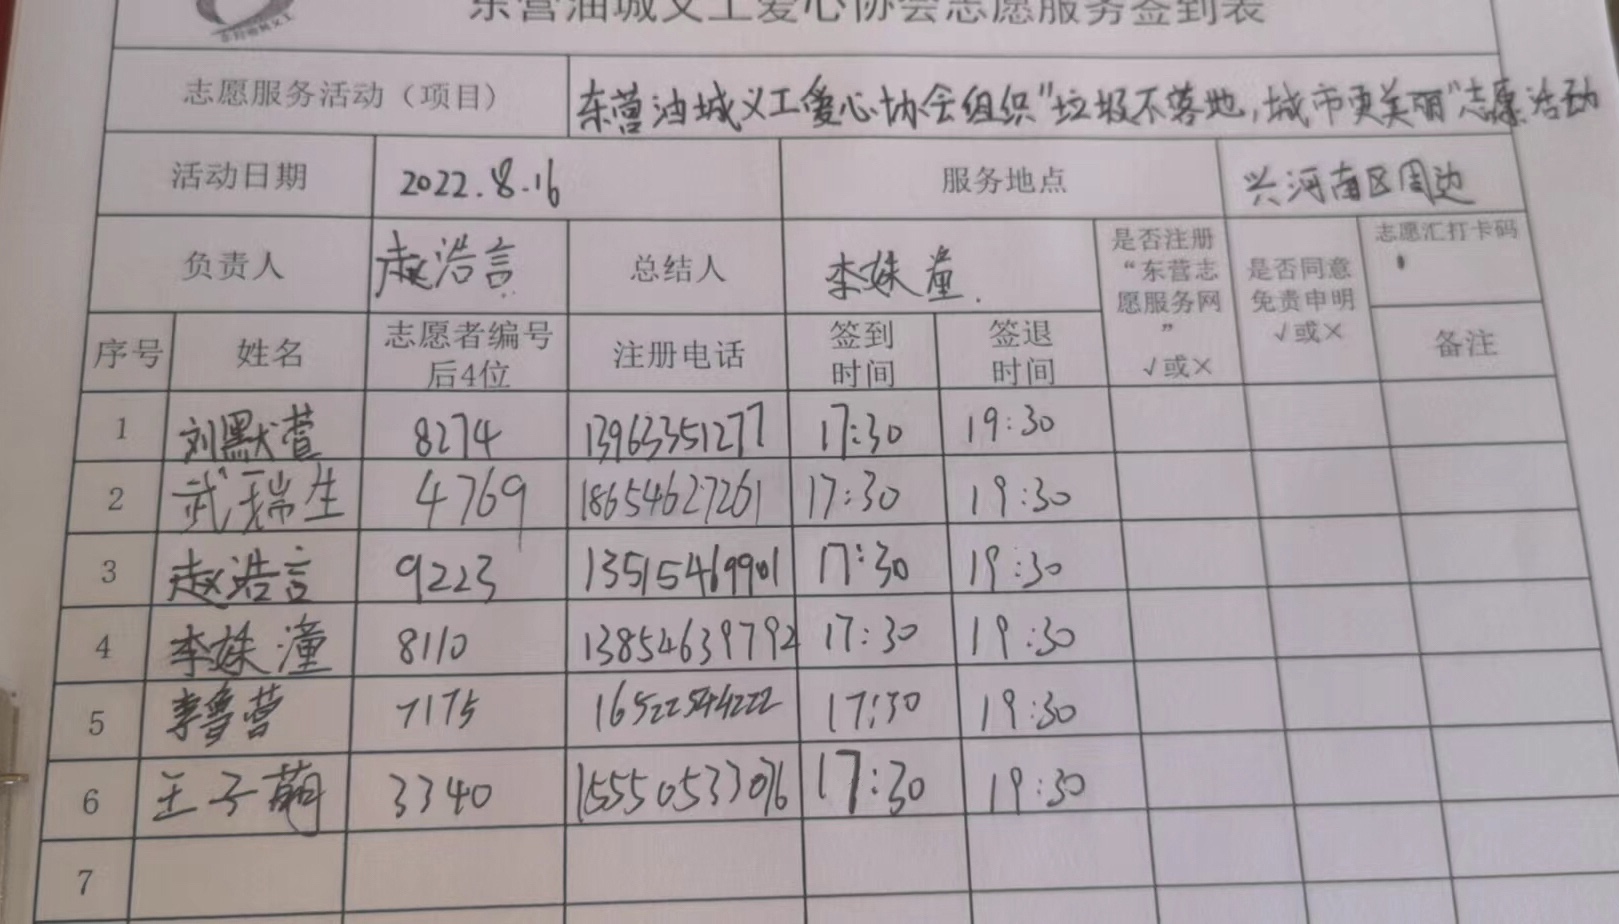 东营油城义工爱心协会志愿服务签到表
志愿服务活动（项目） 东营油城义工爱心协会组织"垃圾不落地，城市更美丽"志愿活动
活动日期 2022.8.16 服务地点 兴河南区周边
负责人 赵浩言 总结人 李姝潼 是否注册“东营志愿服务网” √或× 是否同意免责申明 √或× 志愿汇打卡码
序号 姓名 志愿者编号后4位 注册电话 签到时间 签退时间 备注
1 刘默萱 8274 13963351277 17:30 19:30
2 武瑞生 4769 18654627261 17:30 19:30
3 赵浩言 9223 13515469901 17:30 19:30
4 李姝潼 8110 13854639792 17:30 19:30
5 李鲁营 7175 16522544222 17:30 19:30
6 王子萌 3340 15550533076 17:30 19:30
7